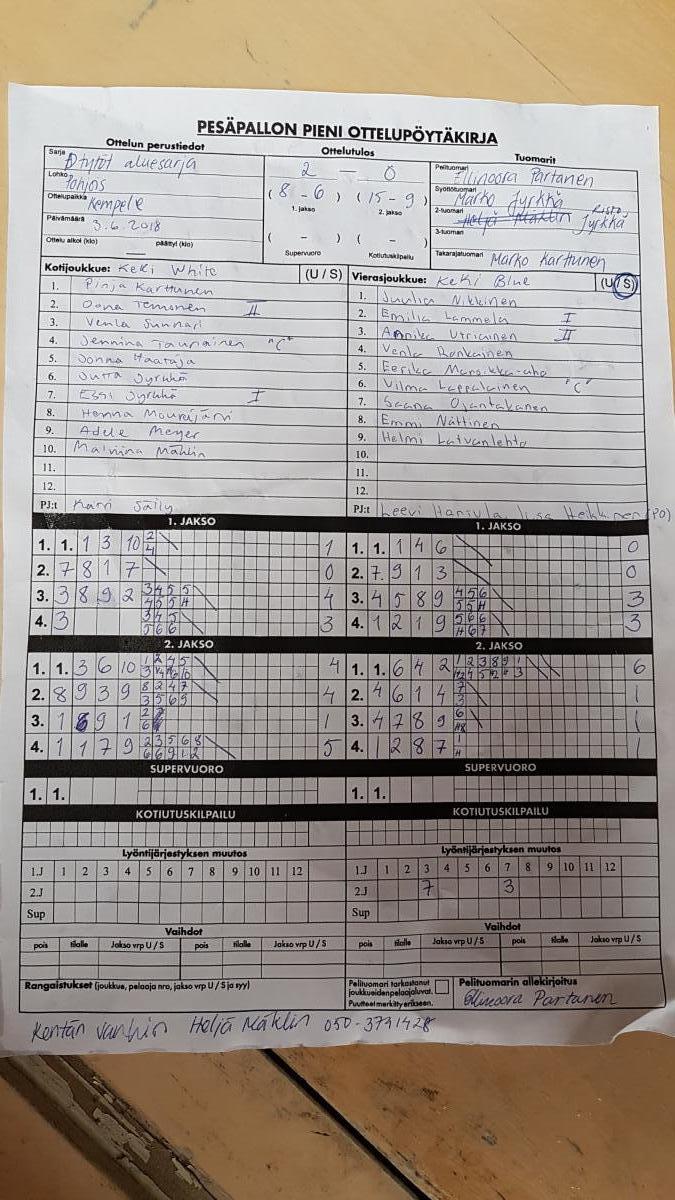 PESÄPALLON PIENI OTTELUPÖYTÄKIRJA
Ottelun perustiedot
Sarja D tytöt aluesarja
Lohko Pohjois
Ottelupaikka Kempele
Päivämäärä 3.6.2018
Ottelu alkoi (klo) — päättyi (klo)
Ottelutulos
2 — 0
( 8 - 6 ) ( 15 - 9 )
1. jakso 2. jakso
( - ) ( - )
Supervuoro Kotiutuskilpailu
Tuomarit
Pelituomari Ellinoora Partanen
Syöttötuomari Marko Jyrkkä
2-tuomari Risto Jyrkkä
3-tuomari
Takarajatuomari Marko Karttunen
Kotijoukkue: KeKi White (U / S)
1. Pinja Karttunen
2. Oona Temonen II
3. Venla Sunnari
4. Jennina Tauriainen "C"
5. Jonna Haataja
6. Jutta Jyrkkä
7. Essi Jyrkkä I
8. Henna Mourujärvi
9. Adele Meyer
10. Malviina Mählin
11.
12.
PJ:t Karri Säily
Vierasjoukkue: KeKi Blue (U / S)
1. Juulia Nikkinen
2. Emilia Lammela I
3. Annika Utriainen II
4. Venla Ronkainen
5. Eerika Marsikka-aho
6. Vilma Lappalainen "C"
7. Saana Ojantakanen
8. Emmi Nättinen
9. Helmi Latvanlehto
10.
11.
12.
PJ:t Leevi Hansula, Iisa Heikkinen (PO)
1. JAKSO
1. 1. 1 3 10 2 4 1
2. 7 8 1 7 0
3. 3 8 9 2 3 4 5 5 4 5 5 H 4
4. 3 3 4 5 5 6 6 3
1. JAKSO
1. 1. 1 4 6 0
2. 7. 9 1 3 0
3. 4 5 8 9 4 5 6 5 5 H 3
4. 1 2 1 9 5 6 6 H 6 7 3
2. JAKSO
1. 1. 3 6 10 4
2. 8 9 3 9 8 2 4 7 3 5 6 9 4
3. 1 9 1 1
4. 1 1 7 9 2 3 5 6 8 6 6 9 1 2 5
2. JAKSO
1. 1. 6 4 2 6
2. 4 6 1 4 7 3 1
3. 4 7 8 9 6 H8 1
4. 1 2 8 7 1 H 1
SUPERVUORO
1. 1.
SUPERVUORO
1. 1.
KOTIUTUSKILPAILU
KOTIUTUSKILPAILU
Lyöntijärjestyksen muutos
1.J 1 2 3 4 5 6 7 8 9 10 11 12
2.J
Sup
Lyöntijärjestyksen muutos
1.J 1 2 3 4 5 6 7 8 9 10 11 12
2.J 7 3
Sup
Vaihdot
pois tilalle Jakso vrp U / S pois tilalle Jakso vrp U / S
Vaihdot
pois tilalle Jakso vrp U / S pois tilalle Jakso vrp U / S
Rangaistukset (joukkue, pelaaja nro, jakso vrp U / S ja syy)
Pelituomari tarkastanut
joukkueiden pelaajaluvat.
Puutteet merkitty erikseen.
Pelituomarin allekirjoitus
Ellinoora Partanen
Kentän vanhin Heljä Mäklin 050-3731428